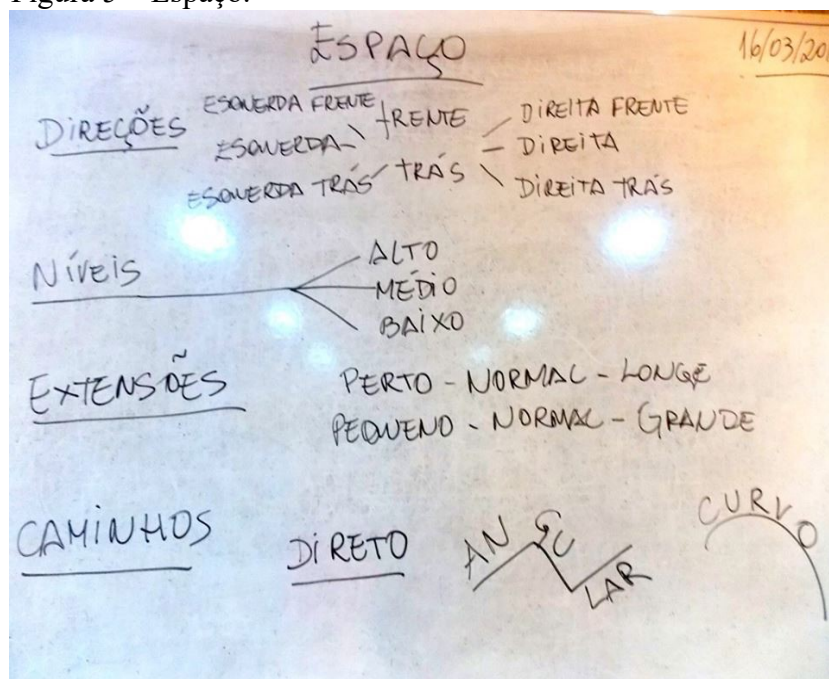 Figura 5 – Espaço.
ESPAÇO
16/03/20
DIREÇÕES
ESQUERDA FRENTE FRENTE DIREITA FRENTE
ESQUERDA DIREITA
ESQUERDA TRÁS TRÁS DIREITA TRÁS
NÍVEIS
ALTO
MÉDIO
BAIXO
EXTENSÕES PERTO - NORMAL - LONGE
PEQUENO - NORMAL - GRANDE
CAMINHOS DIRETO ANGULAR CURVO